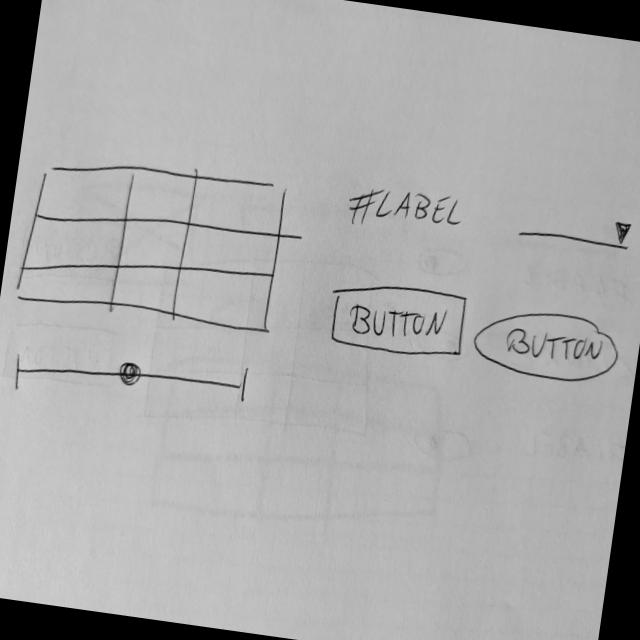 #LABEL
BUTTON
BUTTON